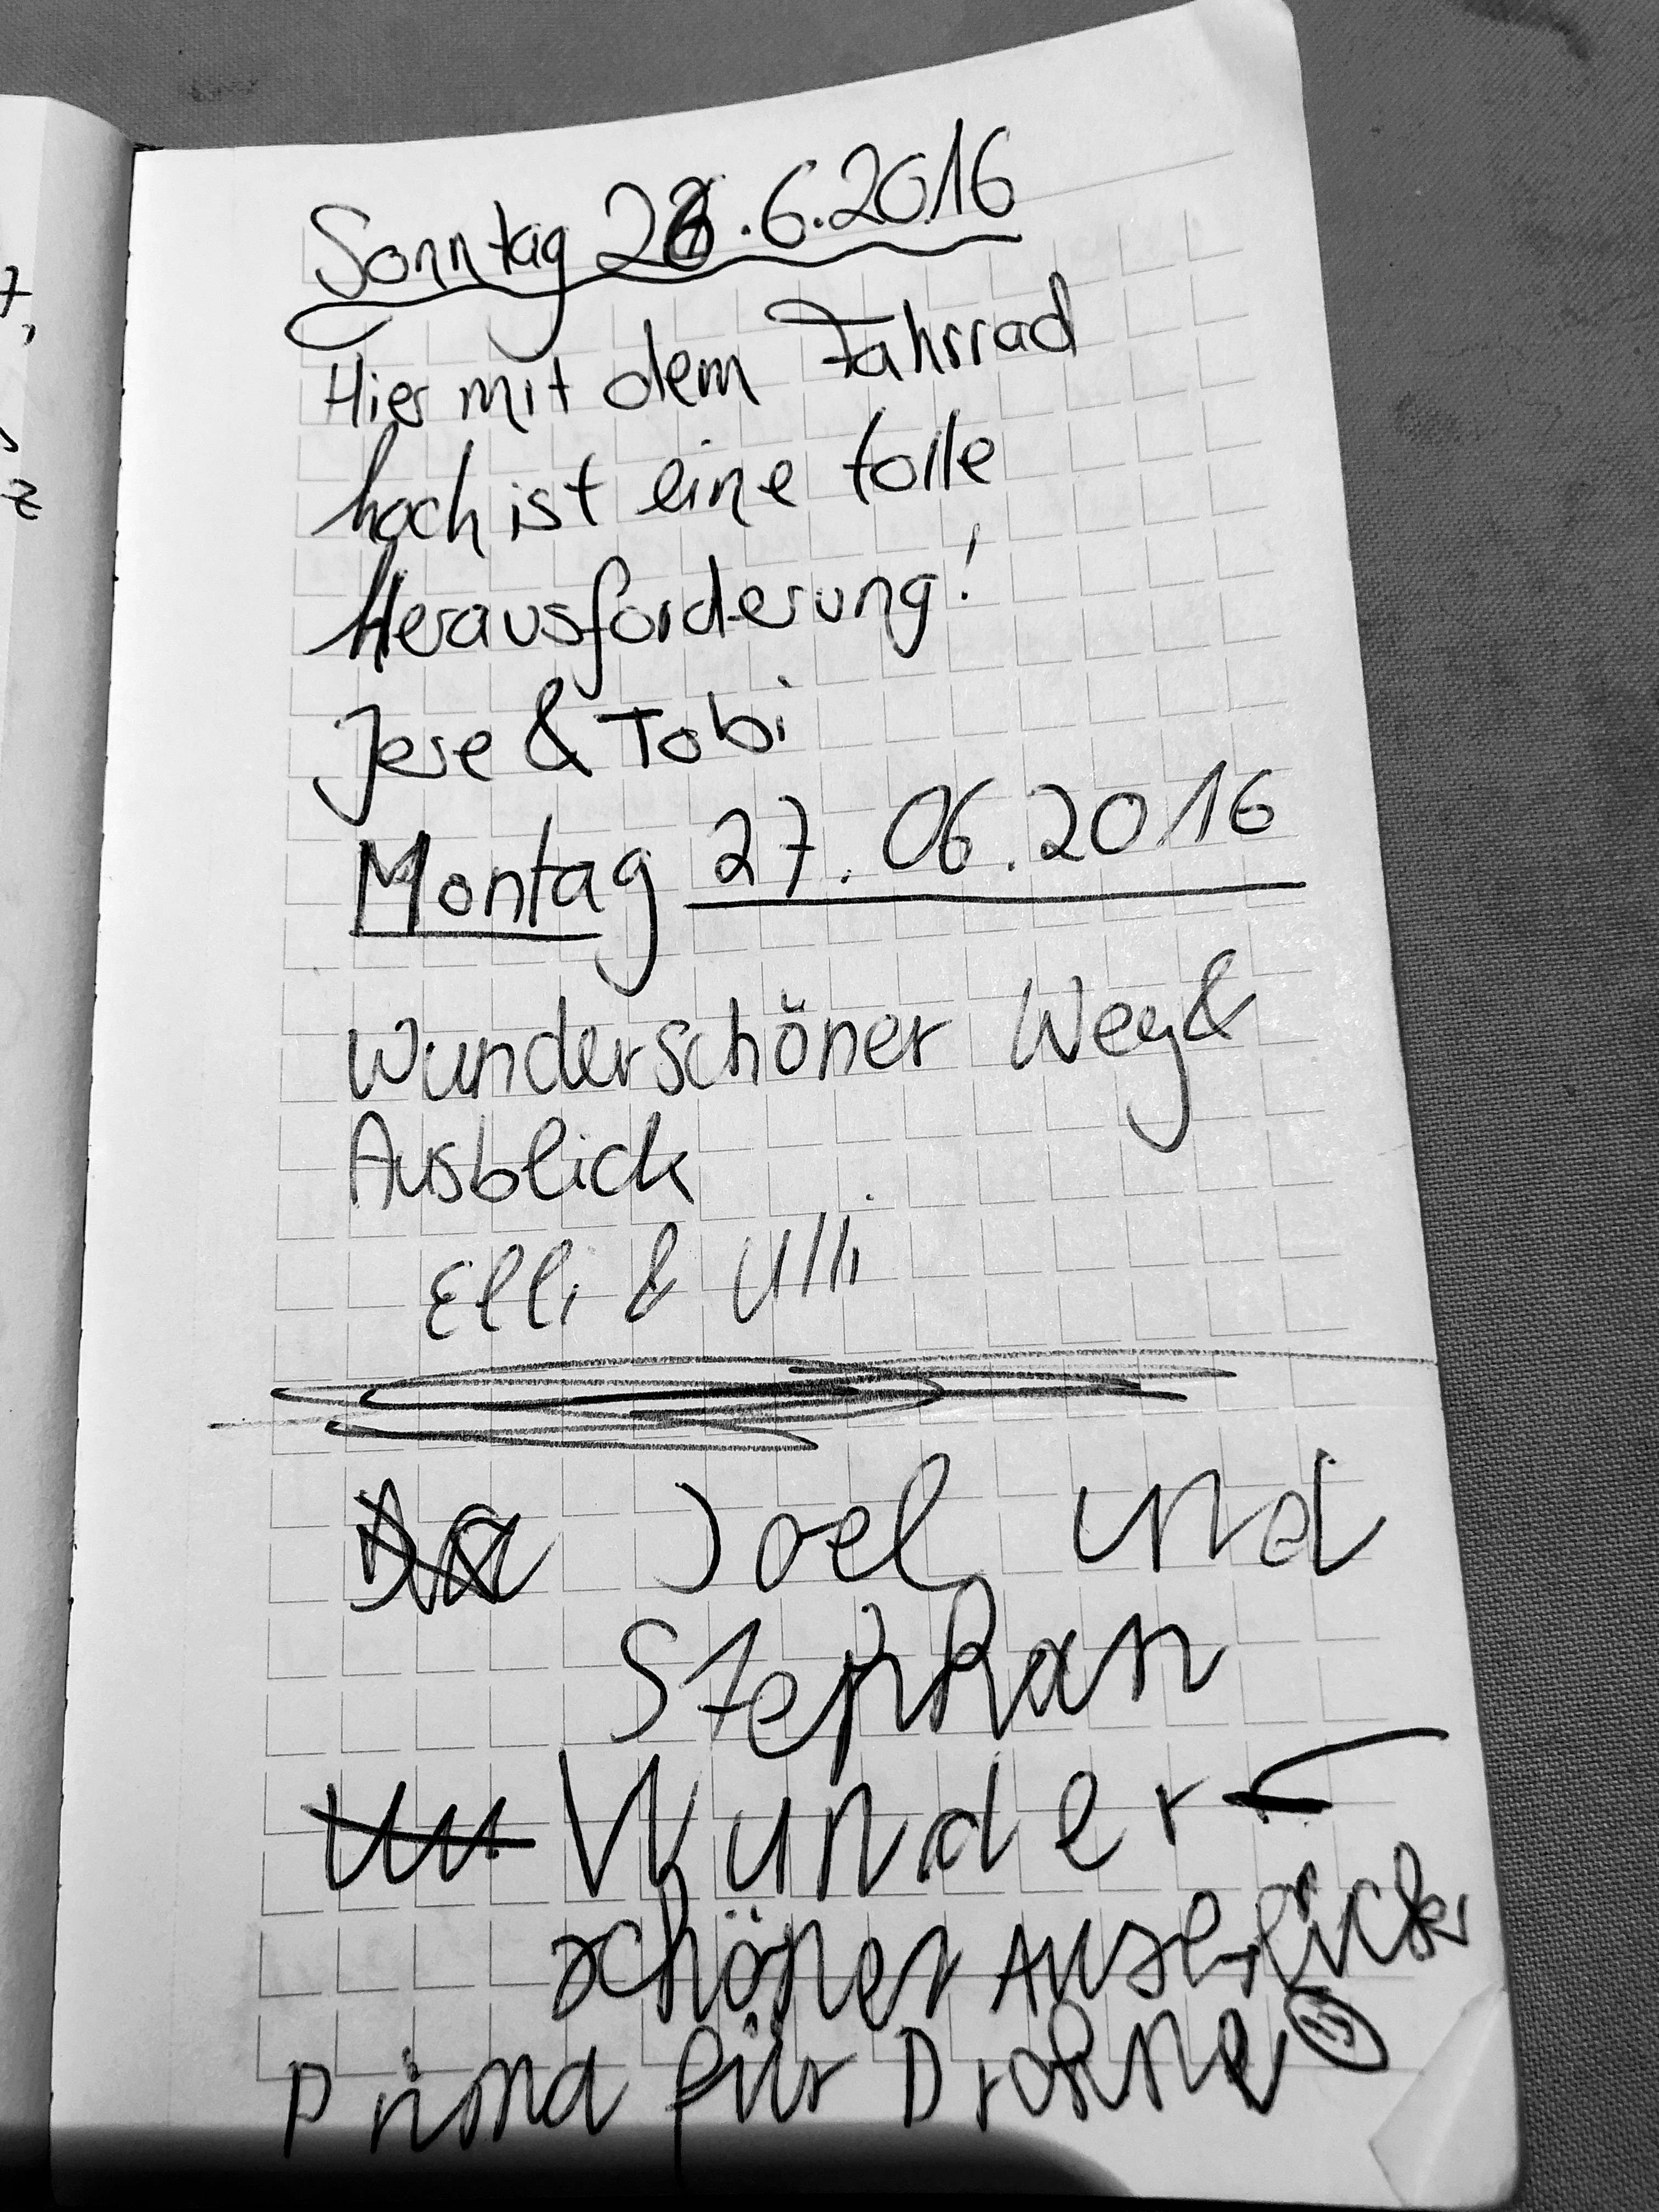 Sonntag 26.6.2016
Hier mit dem Fahrrad
hoch ist eine tolle
Herausforderung!
Jese & Tobi
Montag 27.06.2016
Wunderschöner Weg &
Ausblick
Elli & Ulli
Joel und
Stephan
Wunder-
schöner Ausblick
Prima für Drohne